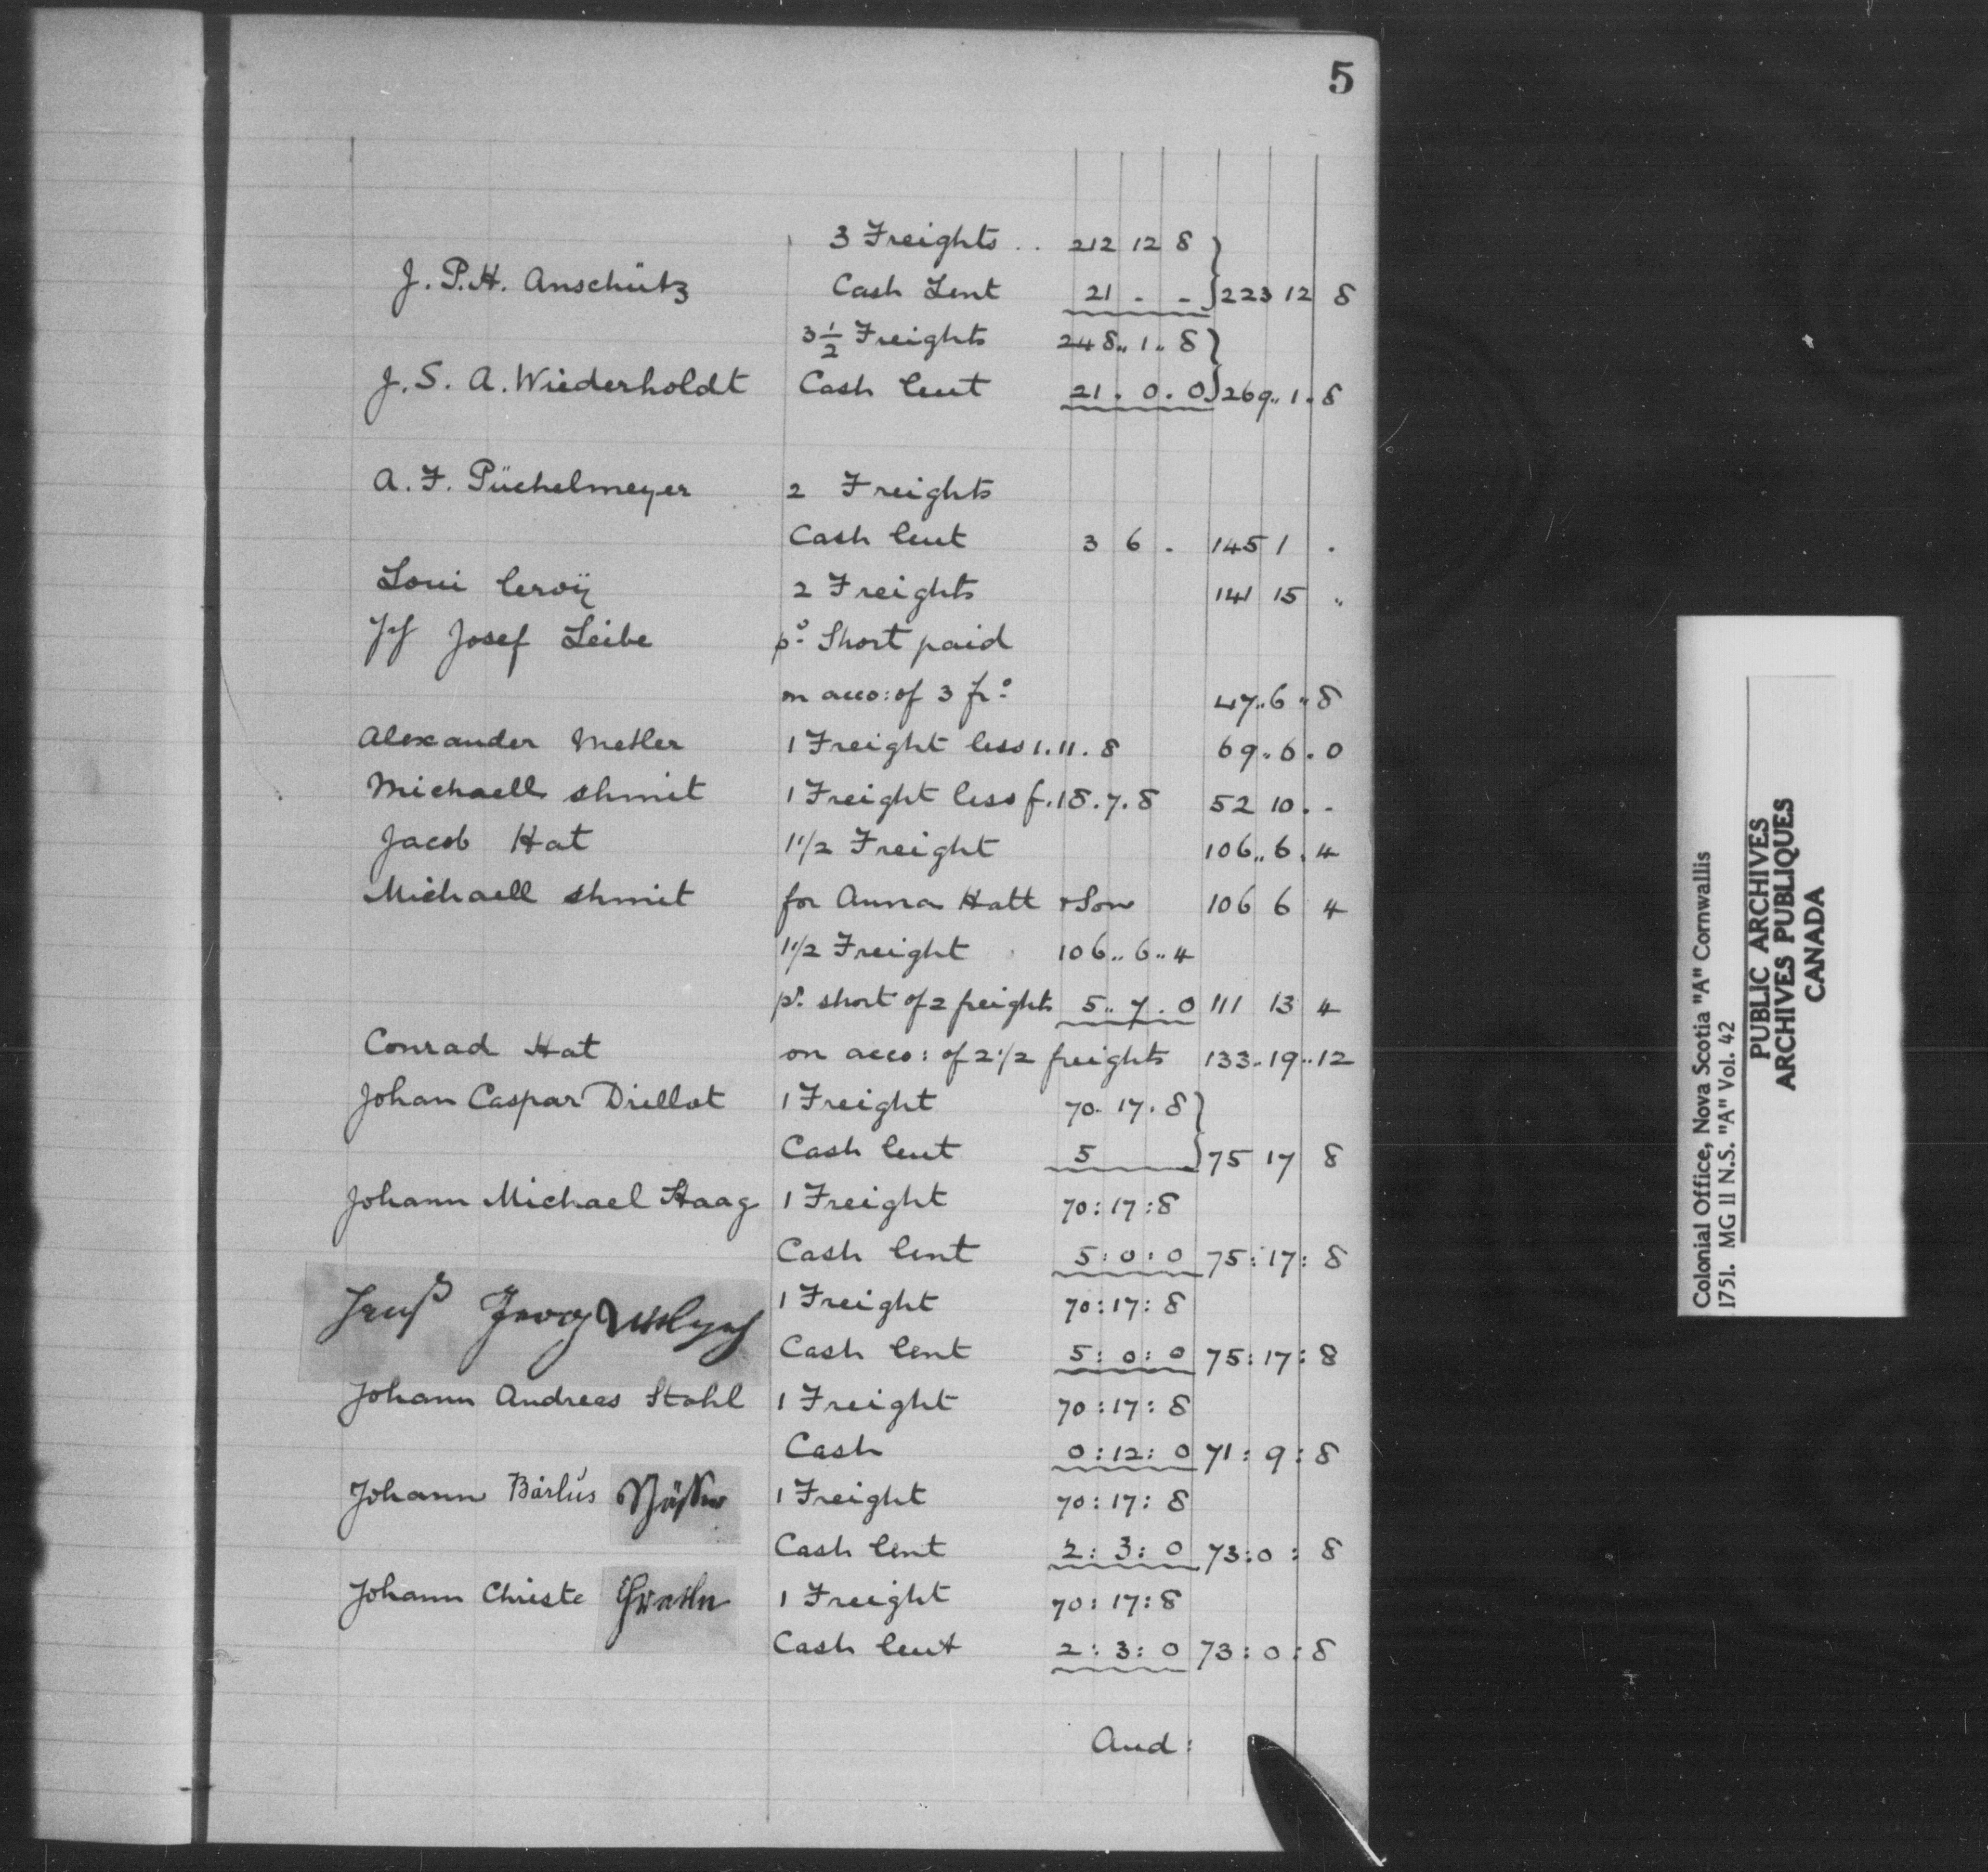 5
3 Freights .. 212 12 8
J. P. H. Anschütz Cash Lent 21 . - } 223 12 8
3 1/2 Freights 248.. 1.. 8
J. S. A. Wiederholdt Cash lent 21 . 0 . 0 } 269.. 1. 8
A. F. Püchelmeyer 2 Freights
Cash lent 3 6 . 145 1 .
Loui leroÿ 2 Freights 141 15 "
Josef Leibe po. Short paid
on acco: of 3 fr. 47.. 6 .. 8
Alexander Metler 1 Freight less 1. 11. 8 69.. 6. 0
Michaell shmit 1 Freight less f. 18. 7. 8 52 10. -
Jacob Hat 1 1/2 Freight 106.. 6. 4
Michaell shmit for Anna Hatt & Son 106 6 4
1 1/2 Freight 106.. 6.. 4
p. short of 2 freights 5.. 7. 0 111 13 4
Conrad Hat on acco: of 2 1/2 freights 133.. 19.. 12
Johan Caspar Drillot 1 Freight 70. 17. 8
Cash lent 5 } 75 17 8
Johann Michael Haag 1 Freight 70 : 17 : 8
Cash lent 5 : 0 : 0 75 : 17 : 8
1 Freight 70 : 17 : 8
Cash lent 5 : 0 : 0 75 : 17 : 8
Johann Andreas Stahl 1 Freight 70 : 17 : 8
Cash 0 : 12 : 0 71 : 9 : 8
Johann Bärlús 1 Freight 70 : 17 : 8
Cash lent 2 : 3 : 0 73 : 0 : 8
Johann Christe 1 Freight 70 : 17 : 8
Cash lent 2 : 3 : 0 73 : 0 : 8
Aud :
Colonial Office, Nova Scotia "A" Cornwallis
1751. MG 11 N.S. "A" Vol. 42
PUBLIC ARCHIVES
ARCHIVES PUBLIQUES
CANADA